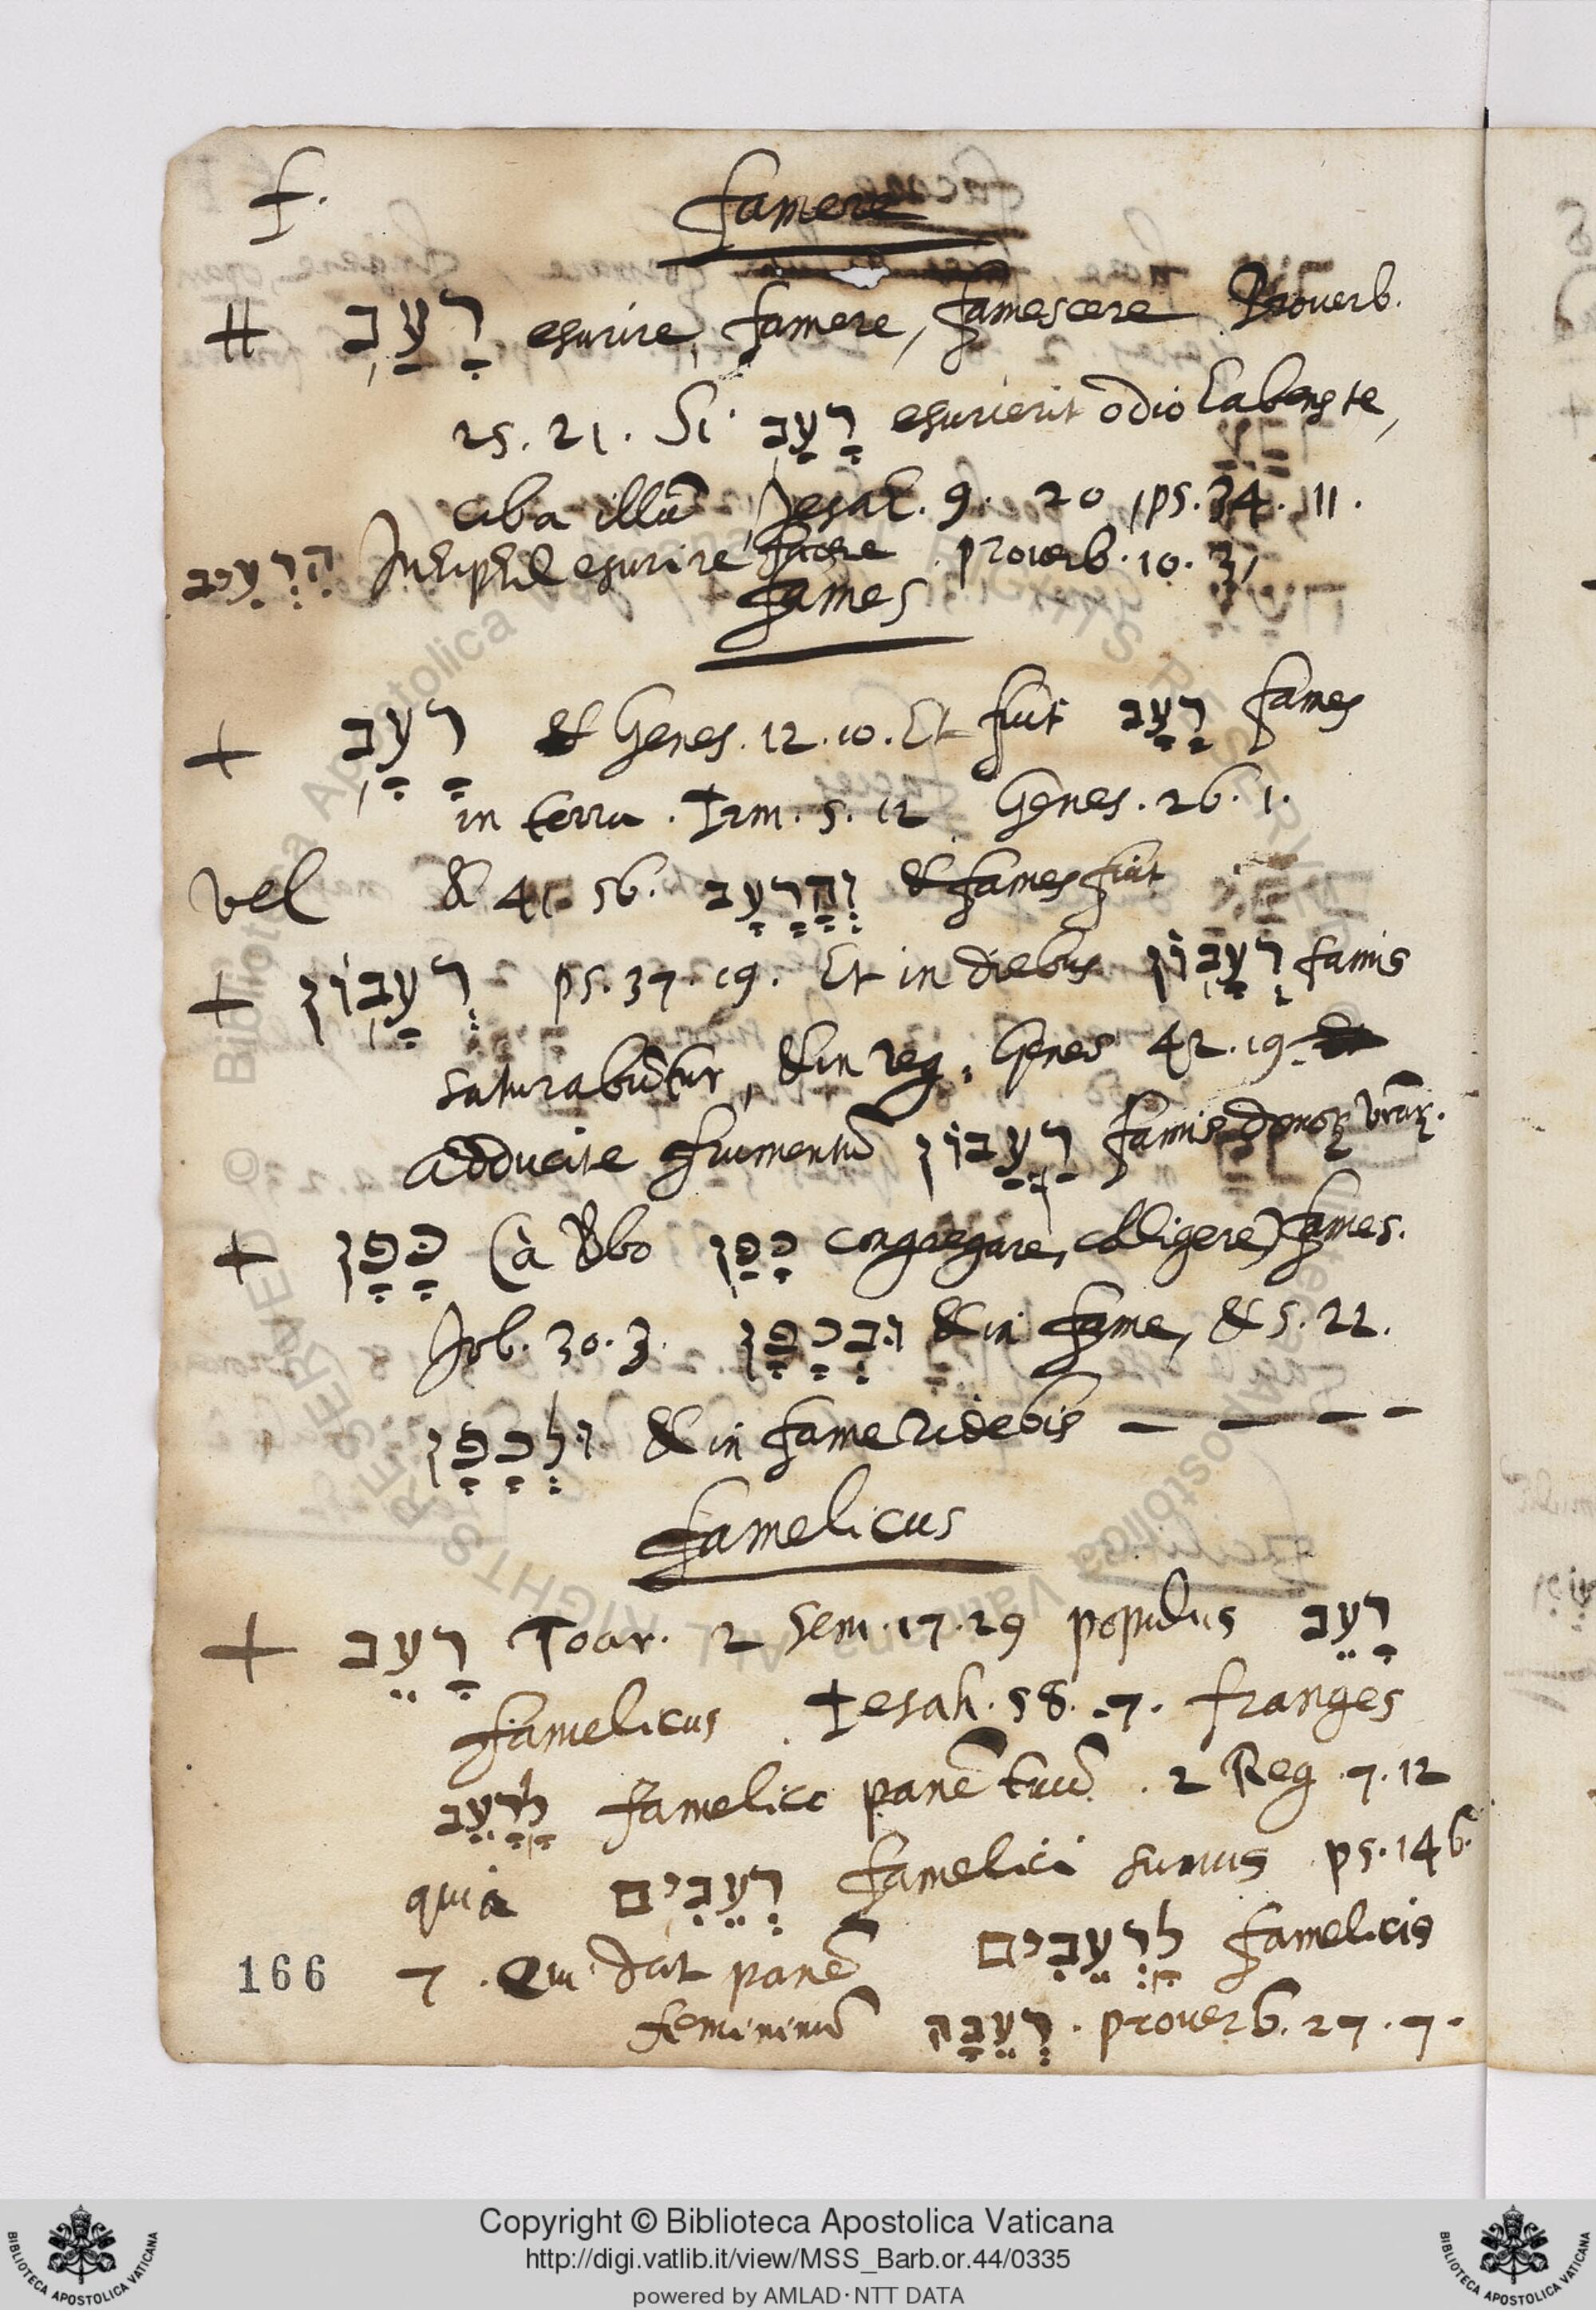 f.
famere
רָעַב esurire, famere, famescere Prouerb.
25. 21. Si רָעַב esurierit odio habens te,
ciba illũ Jesah. 9. 20, ps. 34. 11.
הִרְעִיב In hiphil esurire facere proverb. 10. 3,
fames
+ רָעָב Genes. 12. 10. Et fuit רָעָב fames
in terra. Irm. 5. 12 Genes. 26. 1.
vel & 41. 56. וְהָרָעָב & fames fuit
+ רְעָבוֹן ps. 37. 19. Et in diebus רְעָבוֹן famis
saturabũtur, & in reg. Genes 42. 19.
adducite frumentũ רַעֲבוֹן famis
+ כָּפָן (à Vbo כָּפַן congregare, colligere) fames.
Job. 30. 3. וּבְכָפָן & in fame, & 5. 22.
וּלְכָפָן & in fame ridebis – – – –
famelicus
+ רָעֵב Toar. 2 Sem. 17. 29 populus רָעֵב
famelicus Iesah. 58. 7. franges
לָרָעֵב famelico panẽ tuũ. 2 Reg. 7. 12
quia רְעֵבִים famelici sumus ps. 146.
7. Qui dat panẽ לָרְעֵבִים famelicis
femininũ רְעֵבָה. proverb. 27. 7.
166
© Biblioteca Apostolica Vaticana ALL RIGHTS RESERVED
Copyright © Biblioteca Apostolica Vaticana
http://digi.vatlib.it/view/MSS_Barb.or.44/0335
powered by AMLAD·NTT DATA
BIBLIOTECA APOSTOLICA VATICANA
BIBLIOTECA APOSTOLICA VATICANA